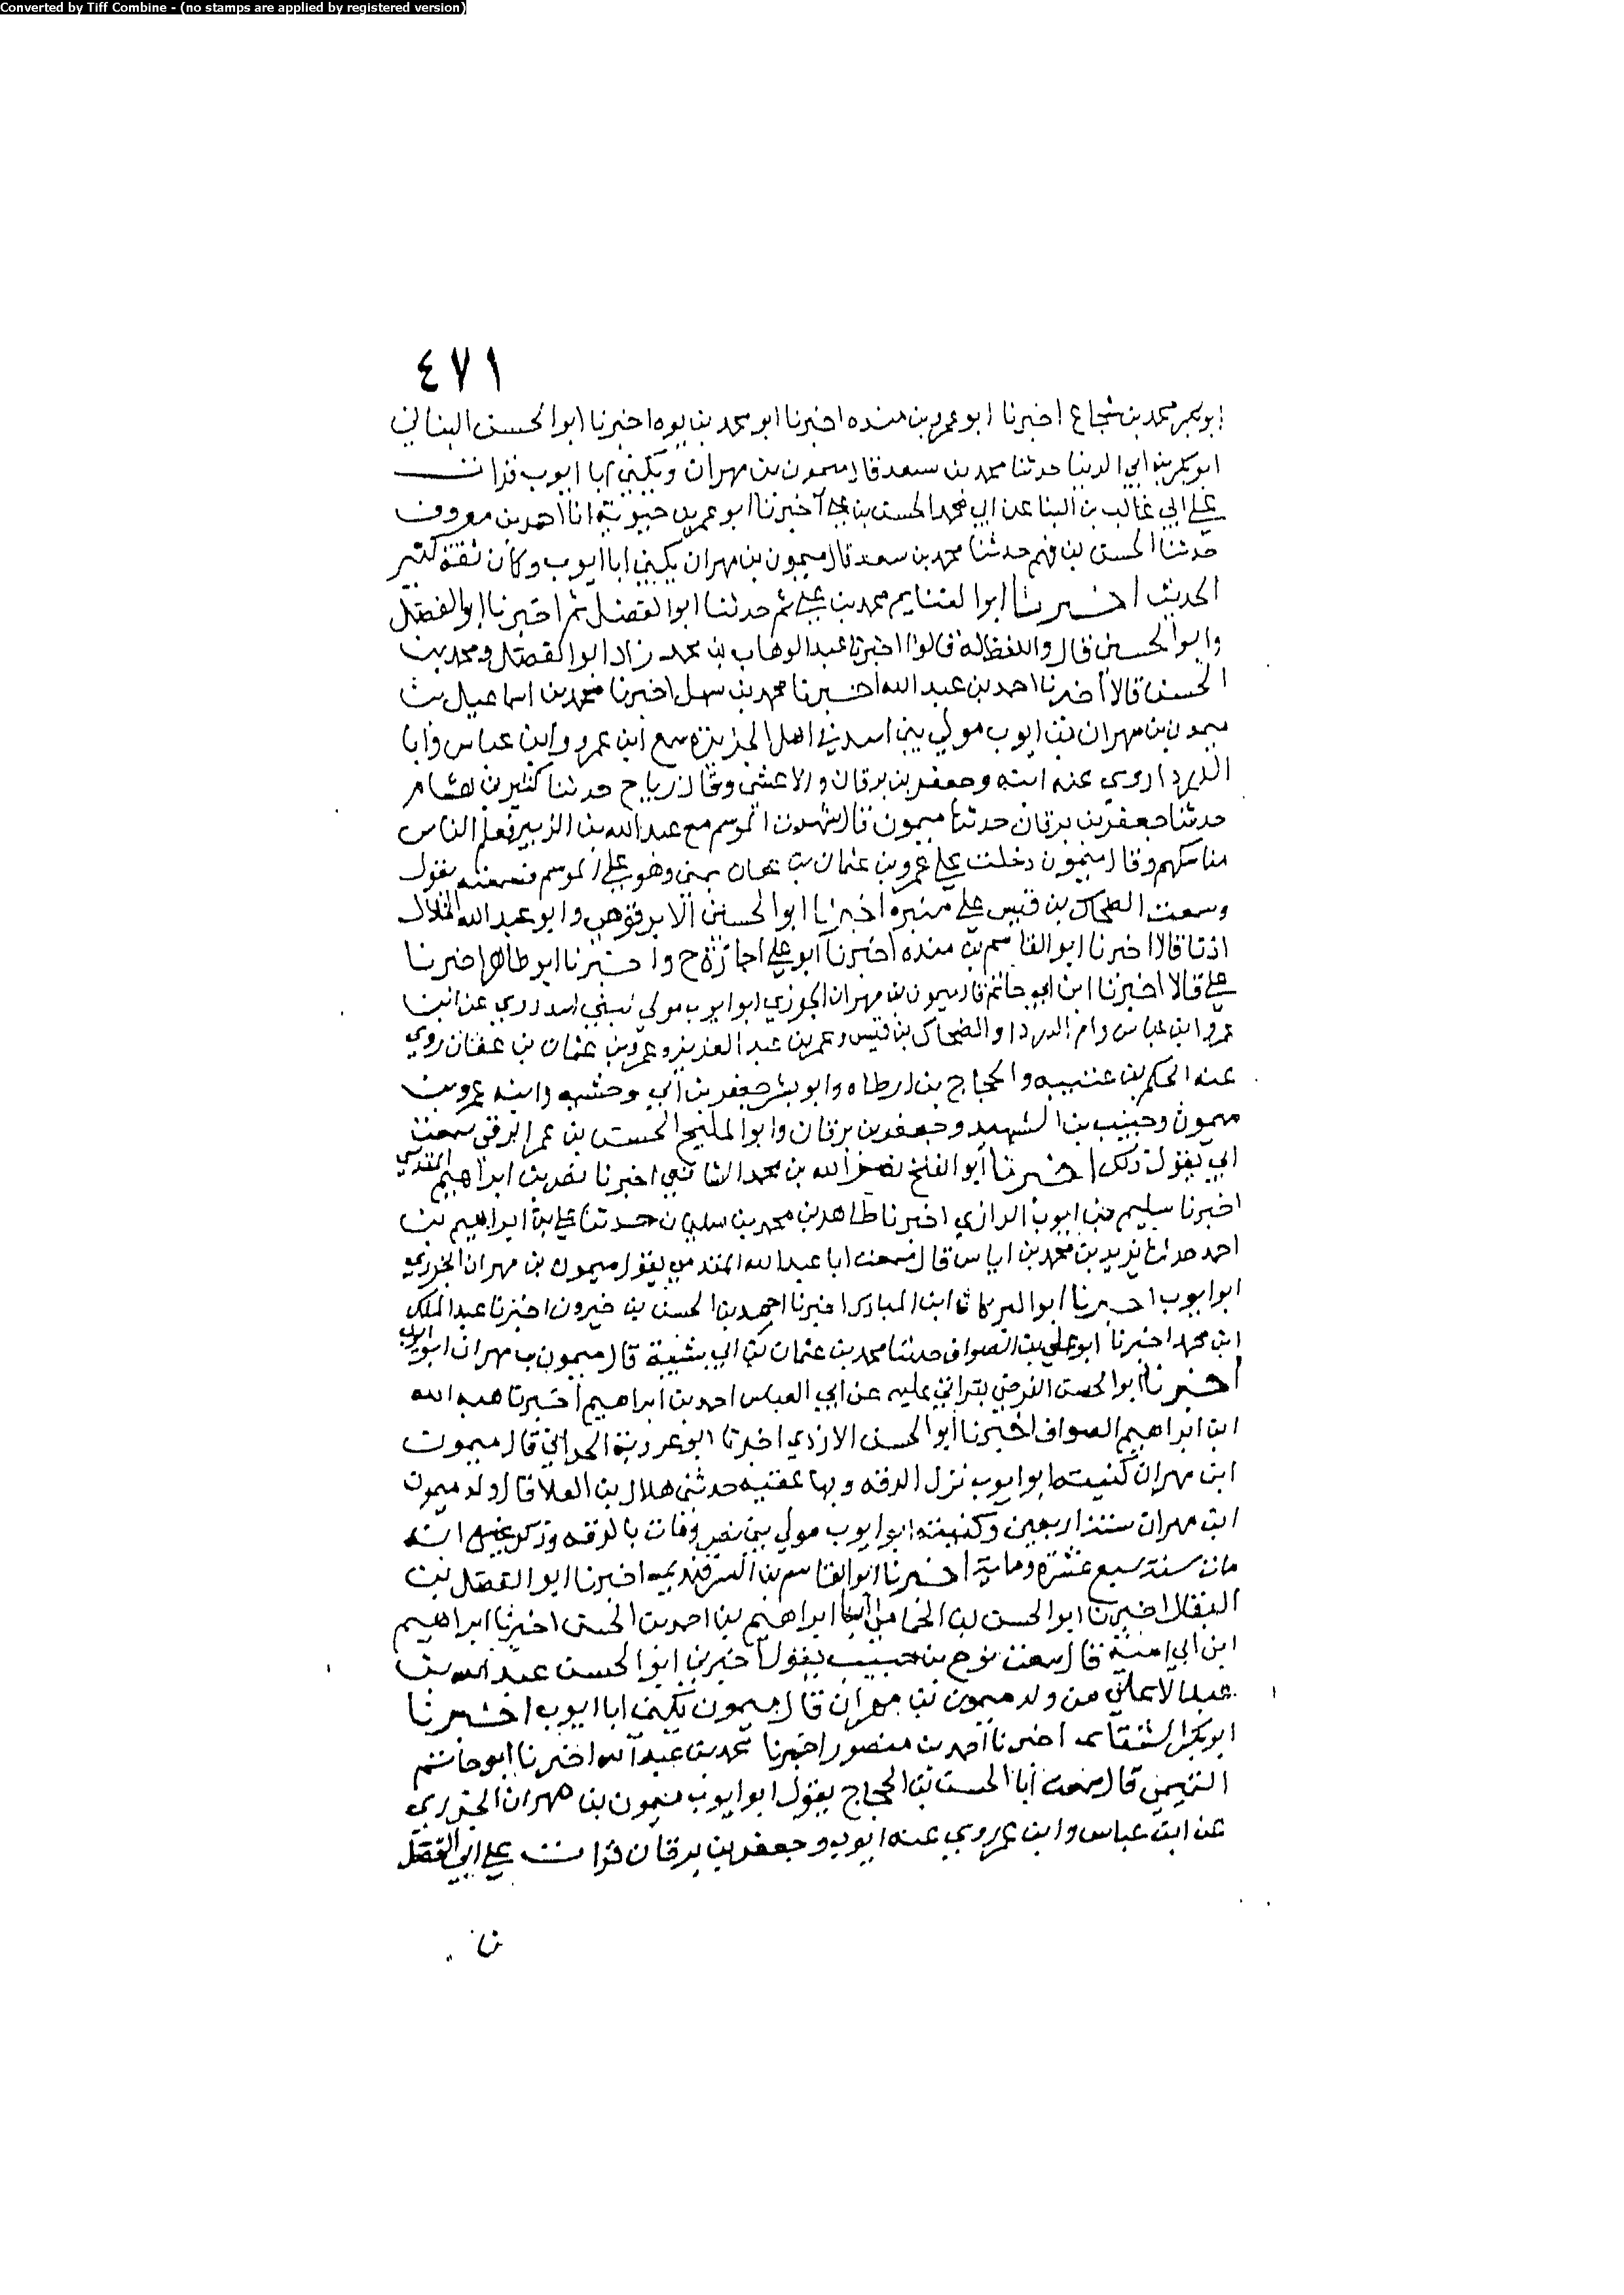 Converted by Tiff Combine - (no stamps are applied by registered version)
٤٧١
ابو بكر محمد بن شجاع اخبرنا ابو عمرو بن منده اخبرنا ابو محمد بن يوه اخبرنا ابو الحسن البناني
ابو بكر بن ابي الدنيا حدثنا محمد بن سعد قال ميمون بن مهران ويكنى ابا ايوب قرات
على ابي غالب بن البنا عن ابي محمد الحسن بن علي اخبرنا ابو عمر بن حيوية انا احمد بن معروف
حدثنا الحسن بن فهم حدثنا محمد بن سعد قال ميمون بن مهران يكنى ابا ايوب وكان ثقة كثير
الحديث اخبرنا ابو الغنايم محمد بن علي ثم حدثنا ابو الفضل ثم اخبرنا ابو الفضل
وابو الحسين قال واللفظ له قالوا اخبرنا عبد الوهاب بن محمد زاد ابو الفضل ومحمد بن
الحسن قالا اخبرنا احمد بن عبد الله اخبرنا محمد بن سهل اخبرنا محمد بن اسماعيل بن
ميمون بن مهران بن ايوب مولى بني اسد في اهل الجزيزه سمع ابن عمر وابن عباس وابا
الدردا روى عنه ابنه وجعفر بن برقان والاعشى وقال رباح حدثنا كثير بن هشام
حدثنا جعفر بن برقان حدثنا ميمون قال شهدت الموسم مع عبد الله بن الزبير فعلم الناس
مناسكهم وقال ميمون دخلت على عمرو بن عثمان بن عفان بمنى وهو على الموسم فسمعته يقول
وسمعت الضحاك بن قيس على منبره اخبرنا ابو الحسين الابرقوهي وابو عبد الله الخلال
اذنا قالا اخبرنا ابو القاسم بن منده اخبرنا ابو علي اجازة ح واخبرنا ابو طاهر اخبرنا
علي قالا اخبرنا ابن ابي حاتم قال ميمون بن مهران الجوزي ابو ايوب مولى لبني اسد روى عن ابن
عمر وابن عباس وام الدردا والضحاك بن قيس وعمر بن عبد العزيز وعمرو بن عثمان بن عفان روى
عنه الحكم بن عتيبه والحجاج بن ارطاه وابو بشر جعفر بن ابي وحشيه وابنه عمرو بن
ميمون وحبيب بن الشهيد وجعفر بن برقان وابو المليح الحسن بن عمر الرقي سمعت
ابي يقول ذلك اخبرنا ابو الفتح نصر الله بن محمد الشافعي اخبرنا نصر بن ابراهيم المقدسي
اخبرنا سليم بن ايوب الرازي اخبرنا طاهر بن محمد بن سليمان حدثنا علي بن ابراهيم بن
احمد حدثنا يزيد بن محمد بن اياس قال سمعت ابا عبد الله المقدمي يقول ميمون بن مهران الجزري
ابو ايوب اخبرنا ابو البركات ابن المبارك اخبرنا احمد بن الحسن بن خيرون اخبرنا عبد الملك
ابن محمد اخبرنا ابو علي بن الصواف حدثنا محمد بن عثمان بن ابي شيبة قال ميمون بن مهران ابو ايوب
اخبرنا ابو الحسن الفرضي بقراتي عليه عن ابي العباس احمد بن ابراهيم اخبرنا هبه الله
ابن ابراهيم الصواف اخبرنا ابو الحسن الازدي اخبرنا ابو عروبة الحراني قال ميمون
ابن مهران كنيته ابو ايوب نزل الرقه وبها عقبه حدثني هلال بن العلا قال ولد ميمون
ابن مهران سنة اربعين وكنيته ابو ايوب مولى بني نصر ومات بالرقه وذكر غيره انه
مات سنة سبع عشرة وماية اخبرنا ابو القاسم بن السمرقندي اخبرنا ابو الفضل بن
البقال اخبرنا ابو الحسن بن الحمامي انا ابراهيم بن احمد بن الحسن اخبرنا ابراهيم
ابن ابي امية قال سمعت نوح بن حبيب يقول اخبرني ابو الحسن عبد الله بن
عبد الاعلى من ولد ميمون بن مهران قال ميمون يكنى ابا ايوب اخبرنا
ابو بكر الشقاني اخبرنا احمد بن منصور اخبرنا محمد بن عبد الله اخبرنا ابو حاتم
التيمي قال سمعت ابا الحسن بن الحجاج يقول ابو ايوب ميمون بن مهران الجزري
عن ابن عباس وابن عمر روى عنه ايوب وجعفر بن برقان قرات على ابي الفضل